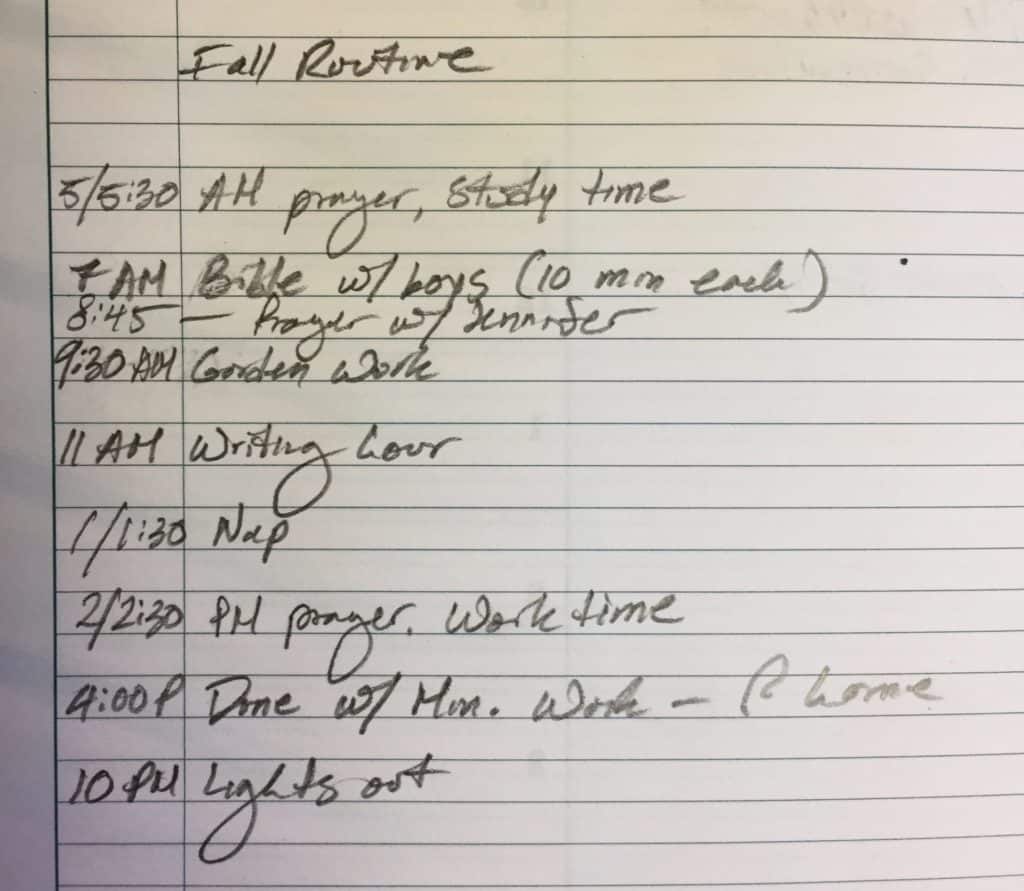 Fall Routine
5/5:30 AM prayer, Study time
7 AM Bible w/ boys (10 min each)
8:45 — Prayer w/ Jennifer
9:30 AM Garden Work
11 AM Writing hour
1/1:30 Nap
2/2:30 PM prayer. Work time
4:00P Done w/ Min. Work - @ home
10 PM Lights out